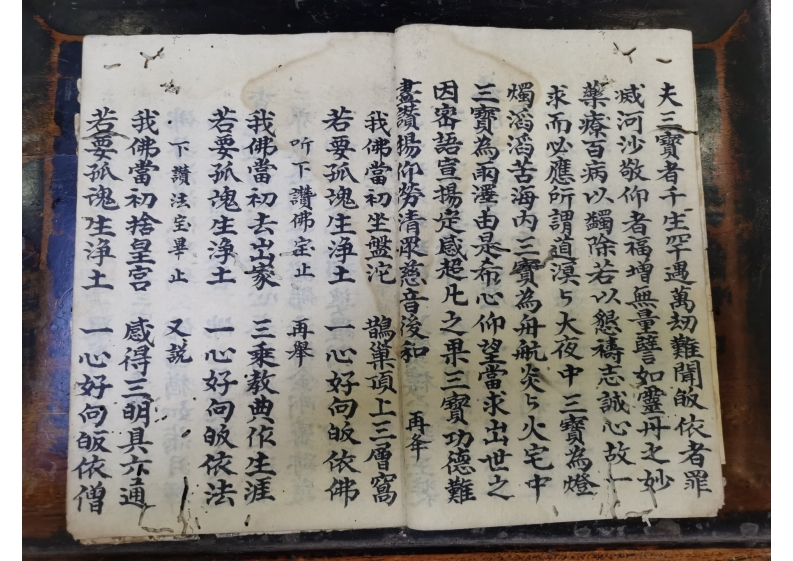 夫三寶者千生罕遇萬劫難聞皈依者罪
滅河沙敬仰者福增無量譬如靈丹之妙
藥療百病以蠲除若以懇禱志誠心故一
求而必應所謂道溟々大夜中三寶為燈
燭滔滔苦海內三寶為舟航炎々火宅中
三寶為雨澤由是布心仰望當求出世之
因密語宣揚定感超凡之果三寶功德難
盡讚揚仰勞清眾慈音後和 再年
我佛當初坐盤沱 鵲巢頂上三層窩
若要孤魂生淨土 一心好向皈依佛
听下讚佛宝止 再舉
我佛當初去出家 三乘教典作生涯
若要孤魂生淨土 一心好向皈依法
下讚法宝畢止 又說
我佛當初捨皇宮 感得三明具六通
若要孤魂生淨土 一心好向皈依僧